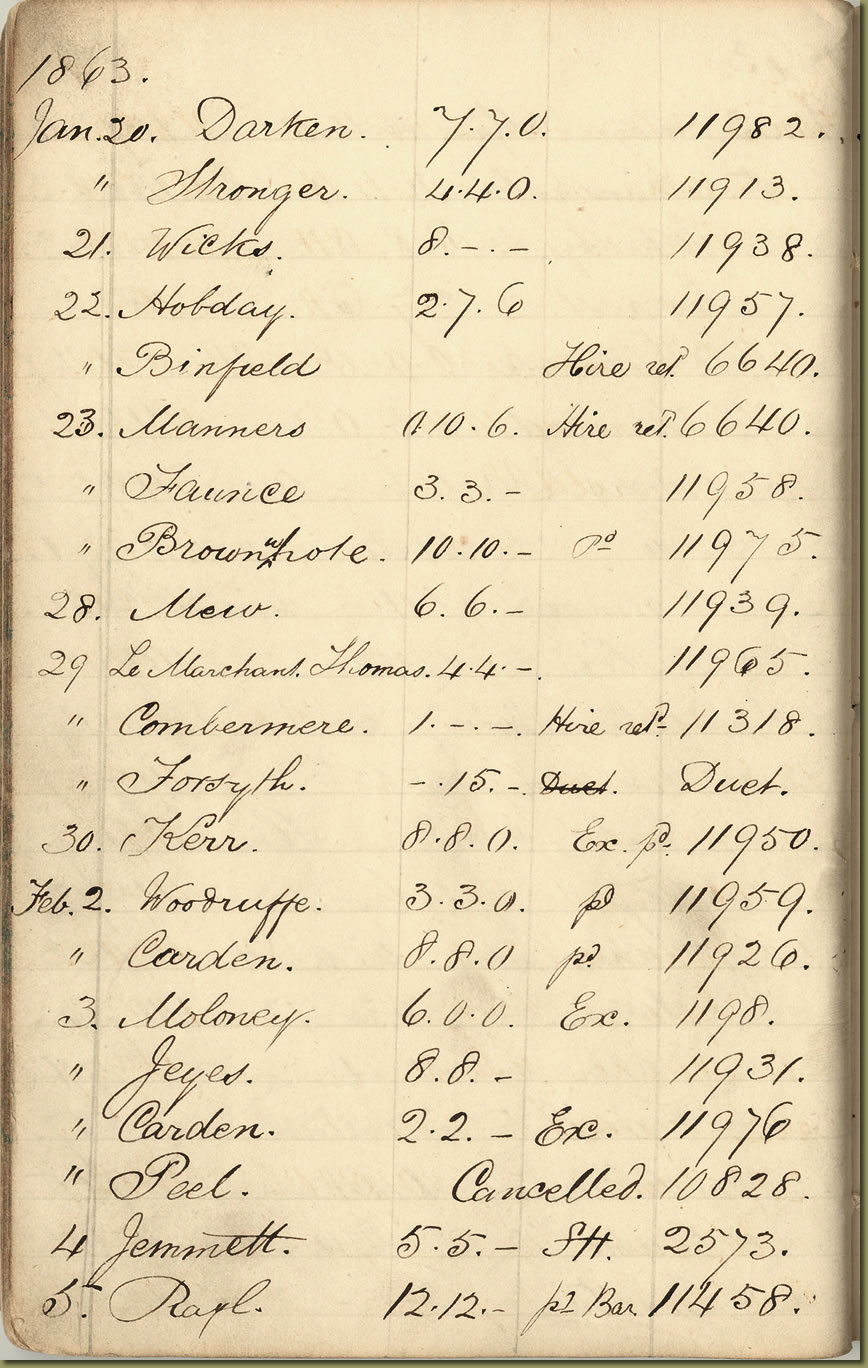 1863.
Jan. 20. Darken. 7.7.0. 11982.
" Stronger. 4.4.0. 11913.
21. Wicks. 8.-.- 11938.
22. Hobday. 2.7.6 11957.
" Binfield Hire ret. 6640.
23. Manners 0.10.6. Hire ret. 6640.
" Faunce 3.3.- 11958.
" Brown hote. 10.10.- Pd 11975.
28. Mew. 6.6.- 11939.
29 Le Marchant. Thomas. 4.4.-. 11965.
" Combermere. 1.-.-. Hire retd 11318.
" Forsyth. -.15.-. Duet. Duet.
30. Kerr. 8.8.0. Ex. pd. 11950.
Feb. 2. Woodruffe. 3.3.0. pd 11959.
" Carden. 8.8.0 pd 11926.
3. Moloney. 6.0.0. Ex. 1198.
" Jeyes. 8.8.- 11931.
" Carden. 2.2.- Ex. 11976
" Peel. Cancelled. 10828.
4 Jemmett. 5.5.- 2573.
5. 12.12.- pd Bar. 11458.